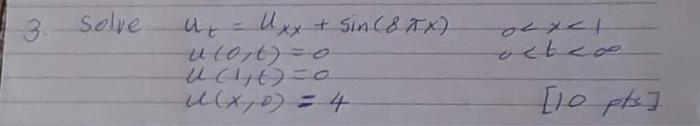 3. Solve u_t = u_xx + sin(8πx) 0<x<1
u(0,t) = 0 0<t<∞
u(1,t) = 0
u(x,0) = 4 [10 pts]